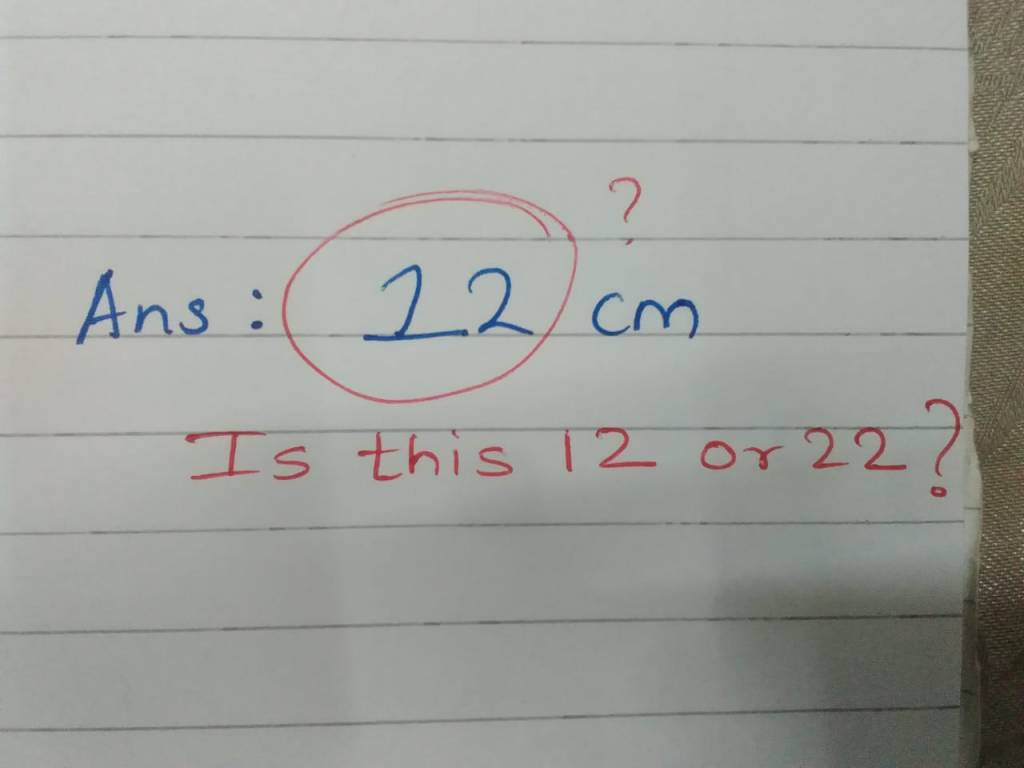 ?
Ans: 12 cm
Is this 12 or 22?